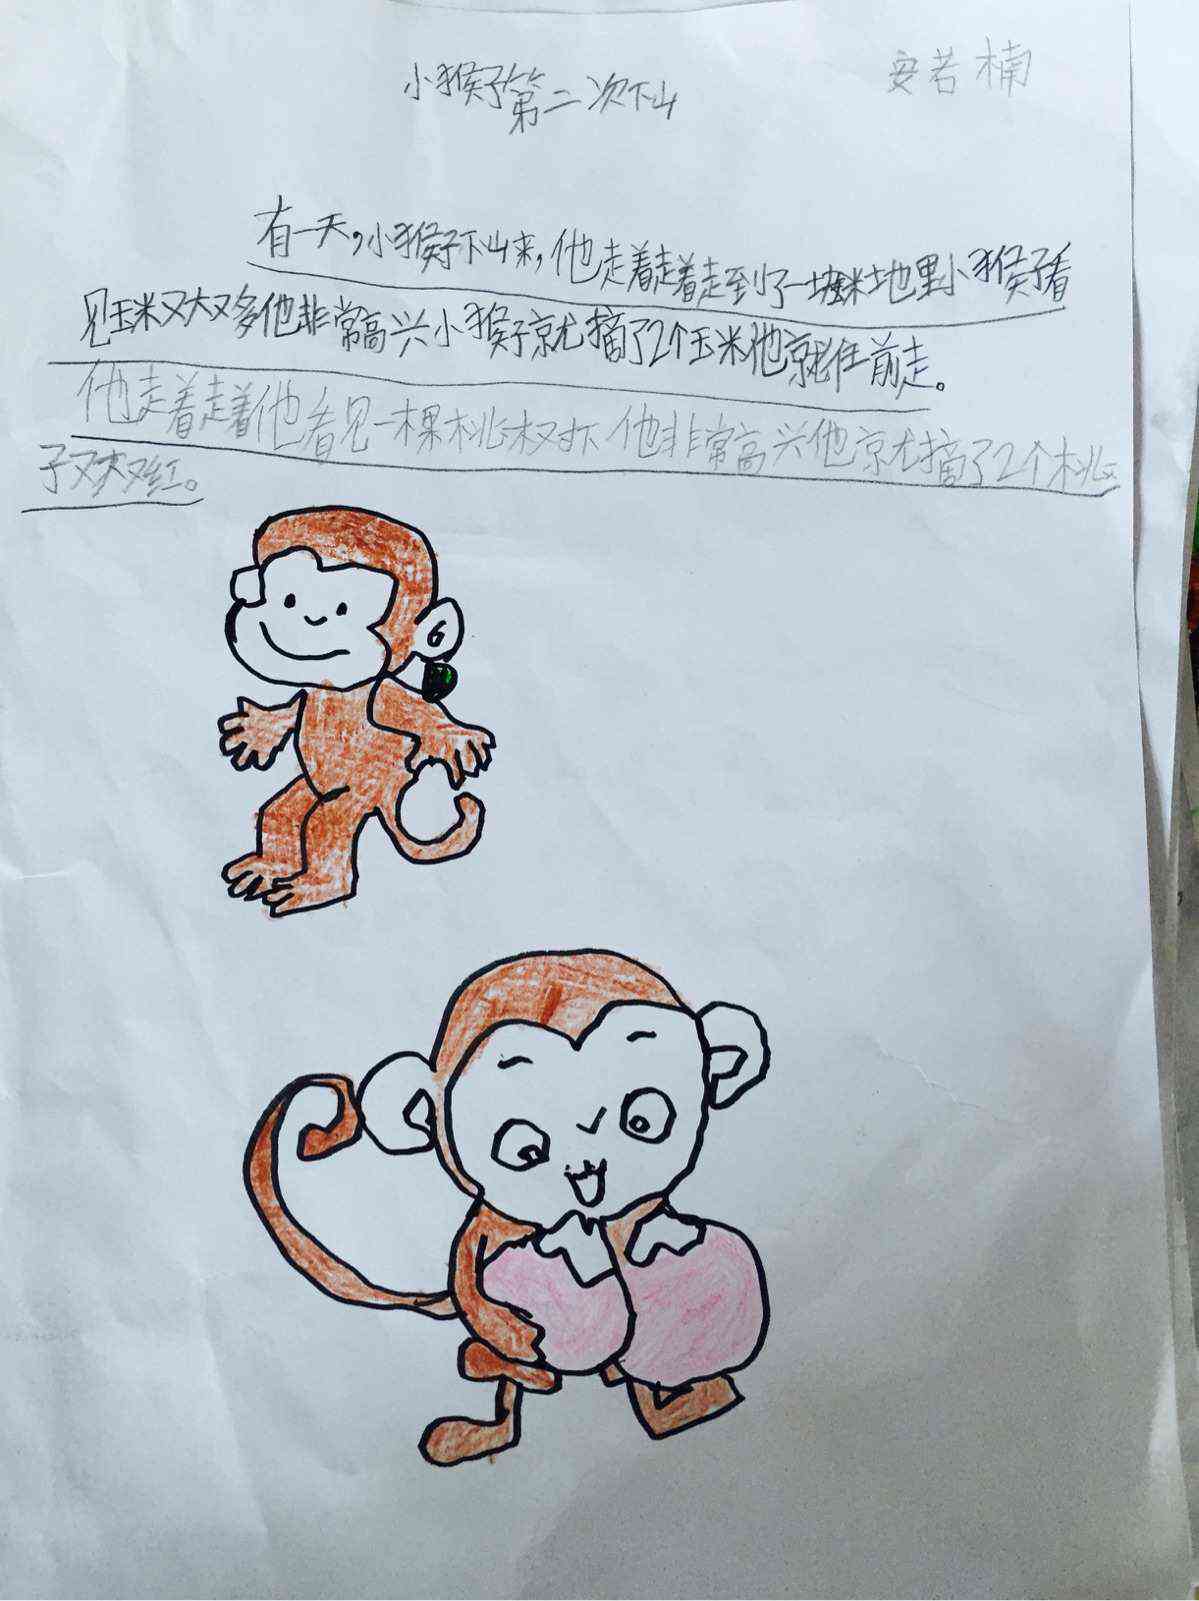 小猴子第二次下山
安若楠
有一天，小猴子下山来，他走着走着走到了一块玉米地里小猴子看
见玉米又大又多他非常高兴小猴子就摘了2个玉米他就往前走。
他走着走着他看见一棵桃树下他非常高兴他就摘了2个桃
子又大又红。